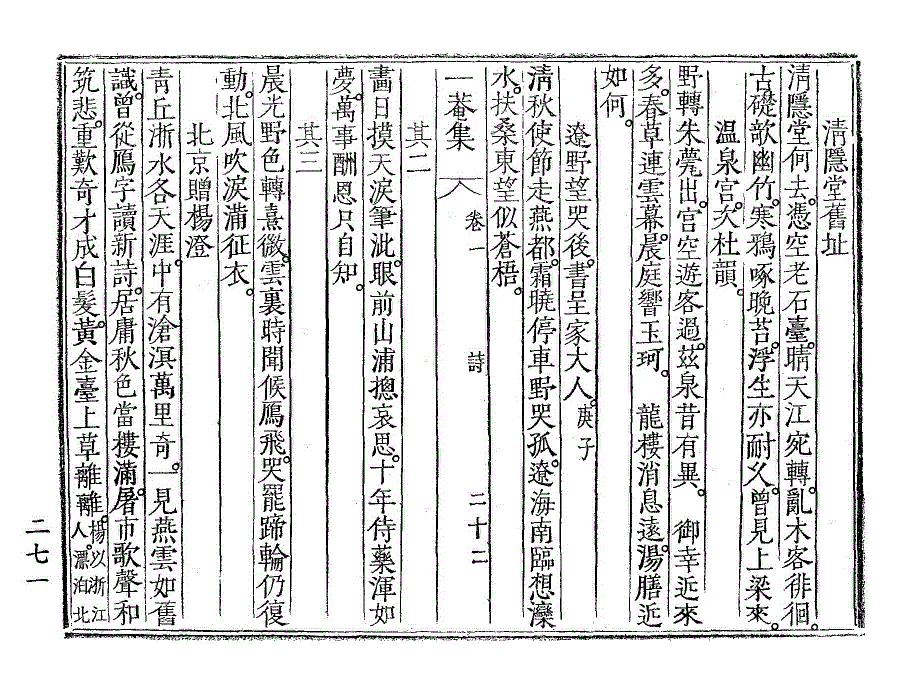 清隱堂舊址
清隱堂何去。憑空老石臺。晴天江宛轉。亂木客徘徊。
古礎欹幽竹。寒鴉啄晩苔。浮生亦耐久。曾見上梁來。
溫泉宮。次杜韻。
野轉朱甍出。宮空遊客過。玆泉昔有異。御幸近來
多。春草連雲幕。晨庭響玉珂。龍樓消息遠。湯膳近
如何。
遼野望哭後。書呈家大人。庚子
淸秋使節走燕都。霜曉停車野哭孤。遼海南臨想灤
水。扶桑東望似蒼梧。
一菴集 卷一 詩 二十二
其二
畵日摸天淚筆泚。眼前山浦摠哀思。十年侍藥渾如
夢。萬事酬恩只自知。
其三
晨光野色轉熹微。雲裏時聞候鴈飛。哭罷蹄輪仍復
動。北風吹淚滿征衣。
北京贈楊澄
靑丘浙水各天涯。中有滄溟萬里奇。一見燕雲如舊
識。曾從鴈字讀新詩。居庸秋色當樓滿。屠市歌聲和
筑悲。重歎奇才成白髮。黃金臺上草離離。楊以浙江
人。漂泊北
二七一